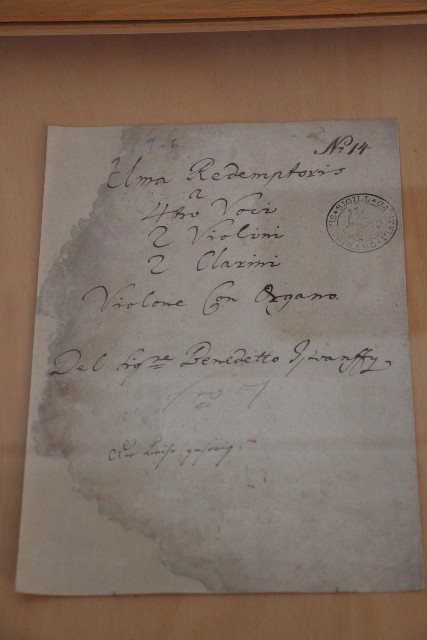 No: 14
7-6
Alma Redemptoris
a
4tro Voci
2 Violini
2 Clarini
Violone Con Organo.
Del Sigre Benedetto Istvanffy